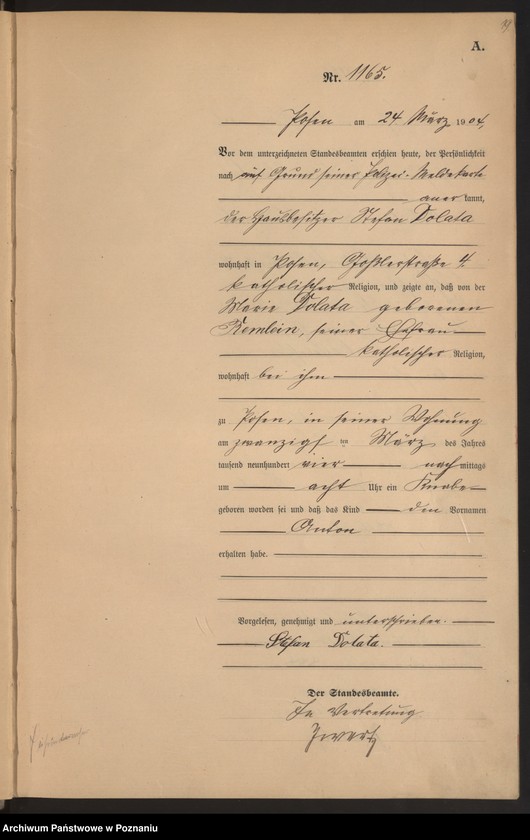 A.
Nr. 1165.
Posen am 24 März 1904,
Vor dem unterzeichneten Standesbeamten erschien heute, der Persönlichkeit
nach auf Grund seiner Polizei-Meldekarte
anerkannt,
der Hausbesitzer Stefan Dolata
wohnhaft in Posen, Goßlerstraße 4.
katholischer Religion, und zeigte an, daß von der
Marie Dolata geborenen
Remlein, seiner Ehefrau
katholischer Religion,
wohnhaft bei ihm
zu Posen, in seiner Wohnung
am zwanzigsten März des Jahres
tausend neunhundert vier nachmittags
um acht Uhr ein Knabe
geboren worden sei und daß das Kind den Vornamen
Anton
erhalten habe.
Vorgelesen, genehmigt und unterschrieben.
Stefan Dolata.
Der Standesbeamte.
In Vertretung
Archiwum Państwowe w Poznaniu